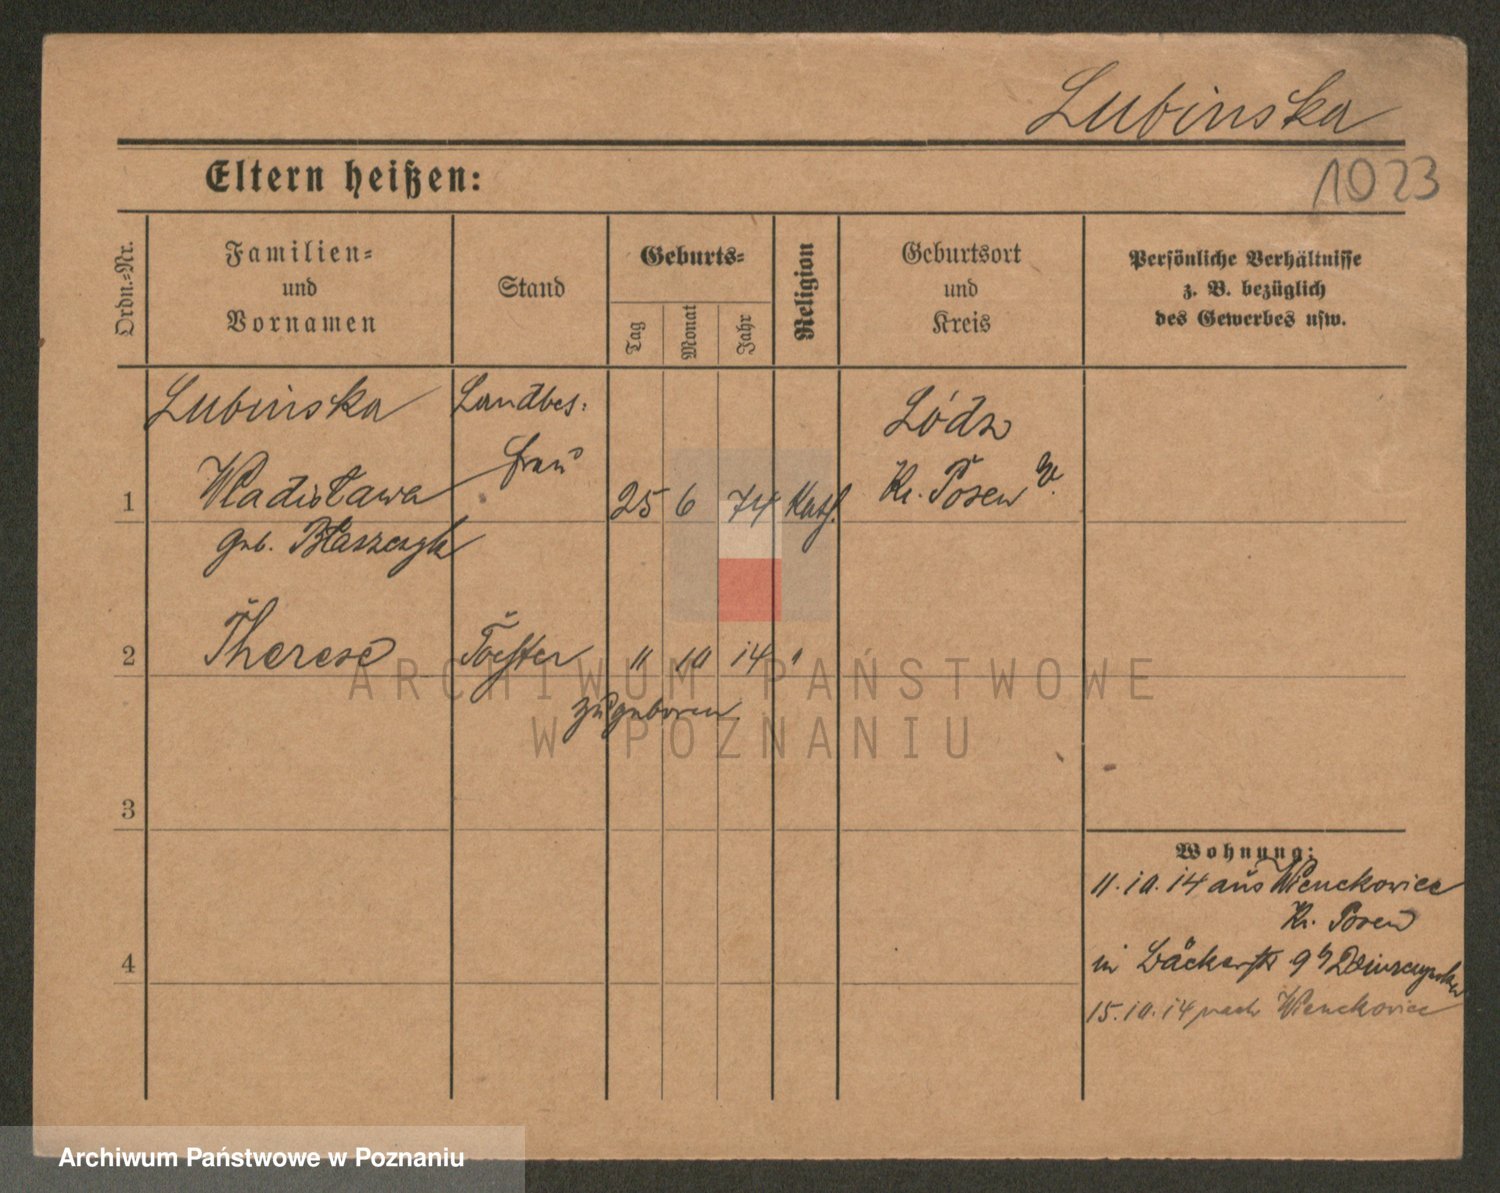 Lubinska
1023
Eltern heißen:
Ordn.-Nr.
Familien-
und
Vornamen
Stand
Geburts-
Tag
Monat
Jahr
Religion
Geburtsort
und
Kreis
Persönliche Verhältnisse
z. B. bezüglich
des Gewerbes usw.
Lubinska Landbes:
frau
Lódz
1 Wladislawa 25 6 74 Kath. Kr. Posen W.
geb. Błaszczyk
2 Therese Tochter 11 10 14 "
zugeboren
ARCHIWUM PAŃSTWOWE
W POZNANIU
3
4
Wohnung:
11.10.14 aus Wienckowice
Kr. Posen
in Bäckerstr 9 b
15.10.14 nach Wienckovice
Archiwum Państwowe w Poznaniu